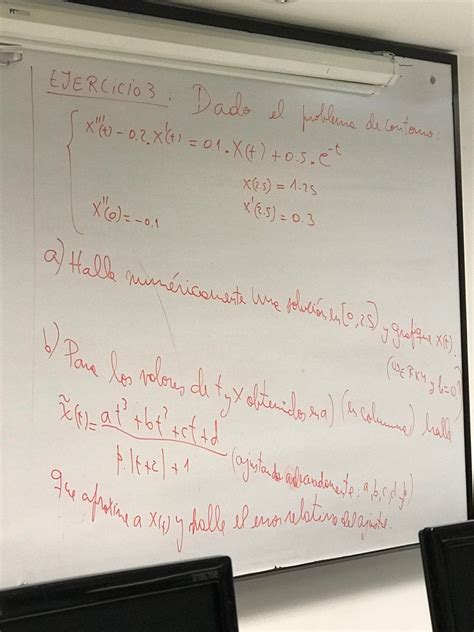 EJERCICIO 3: Dado el problema de contorno:
x'''(t) - 0.2 · x'(t) = 0.1 · x(t) + 0.5 · e^-t
x(2.5) = 1.25
x''(0) = -0.1
x'(2.5) = 0.3
a) Halla numéricamente una solución en [0, 2.5] y grafique x(t).
(use RK4 y h=0
b) Para los valores de t y x obtenidos en a) (en columna) halla
x̃(t) = at³ + bt² + ct + d
p·|t+2| + 1
(ajustando adecuadamente: a, b, c, d, p)
que aproxime a x(t) y halle el error relativo del ajuste.